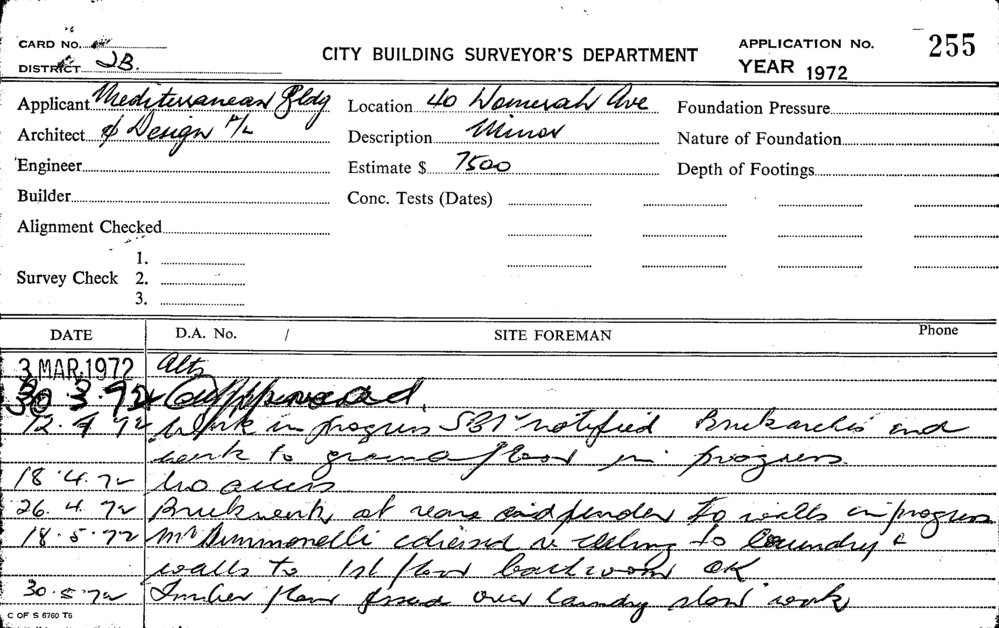 CARD NO.
CITY BUILDING SURVEYOR'S DEPARTMENT
APPLICATION NO. 255
DISTRICT JB.
YEAR 1972
Applicant Mediterranean Bldg
Location 40 Womerah Ave
Foundation Pressure
Architect & Design P/L
Description Minor
Nature of Foundation
Engineer
Estimate $ 7500
Depth of Footings
Builder
Conc. Tests (Dates)
Alignment Checked
1.
Survey Check 2.
3.
DATE D.A. No. / SITE FOREMAN Phone
3 MAR 1972 Alts
30.3.72 Approved.
12.4.72 Work in progress notified Brick arches and
work to ground floor in progress
18.4.72 No access
26.4.72 Brickwork at rear and to walls in progress
18.5.72 Mr advised re ceiling to laundry &
walls to 1st floor bathroom OK
30.5.72 Timber floor fixed over laundry slow work
C OF S 6760 T6